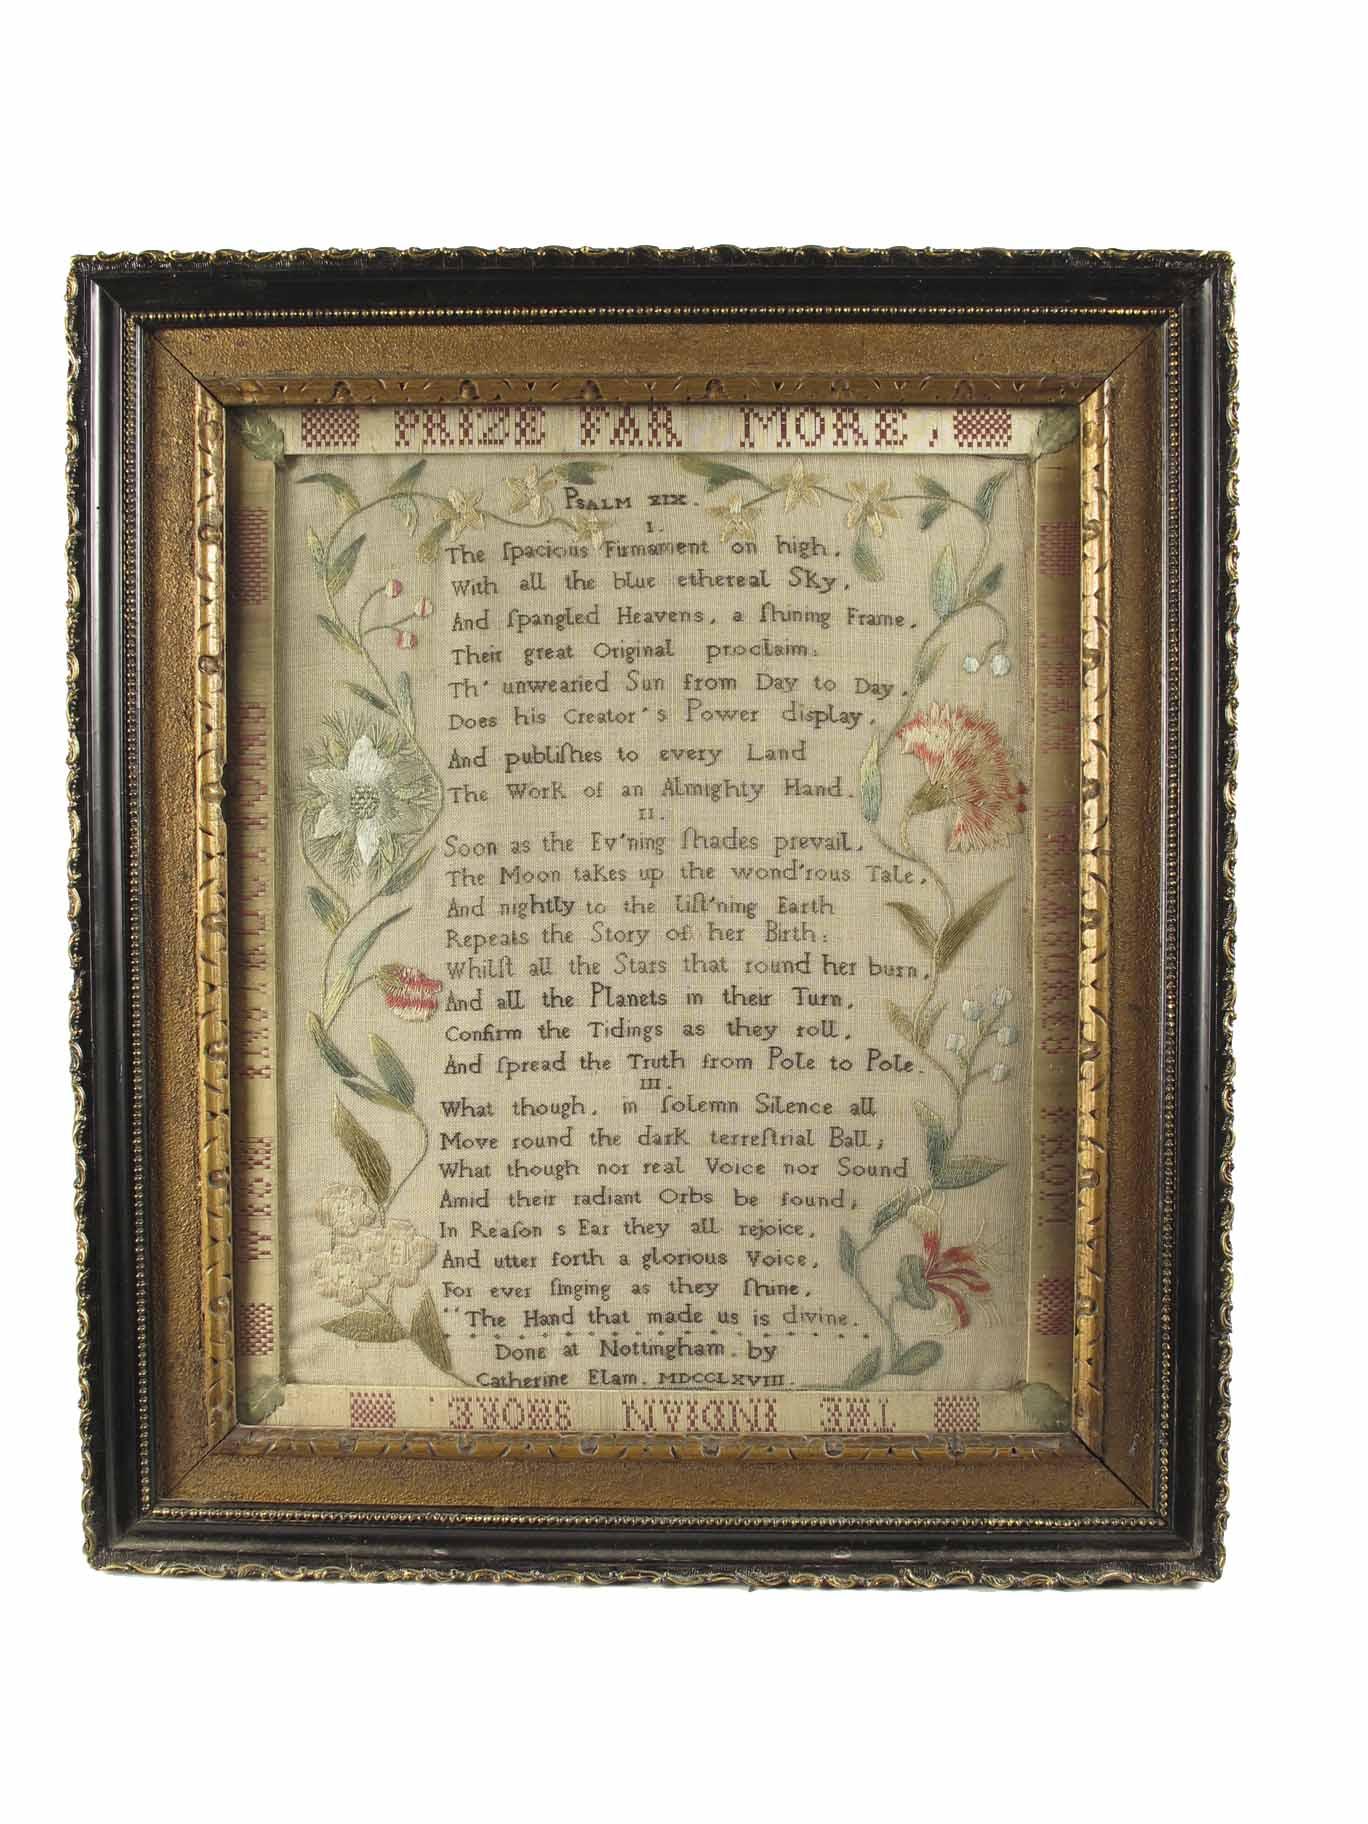 PRIZE FAR MORE,
Psalm XIX.
I.
The ſpacious Firmament on high,
With all the blue ethereal Sky,
And ſpangled Heavens, a ſhining Frame,
Their great Original proclaim:
Th' unwearied Sun from Day to Day,
Does his Creator's Power display,
And publiſhes to every Land
The Work of an Almighty Hand.
II.
Soon as the Ev'ning ſhades prevail,
The Moon takes up the wond'rous Tale,
And nightly to the liſt'ning Earth
Repeats the Story of her Birth:
Whilſt all the Stars that round her burn,
And all the Planets in their Turn,
Confirm the Tidings as they roll,
And ſpread the Truth from Pole to Pole.
III.
What though, in ſolemn Silence all
Move round the dark terreſtrial Ball;
What though nor real Voice nor Sound
Amid their radiant Orbs be found;
In Reaſon s Ear they all rejoice,
And utter forth a glorious Voice,
For ever ſinging as they ſhine,
"The Hand that made us is divine.
Done at Nottingham. by
Catherine Elam. MDCCLXVIII.
THE INDIAN SHORE,